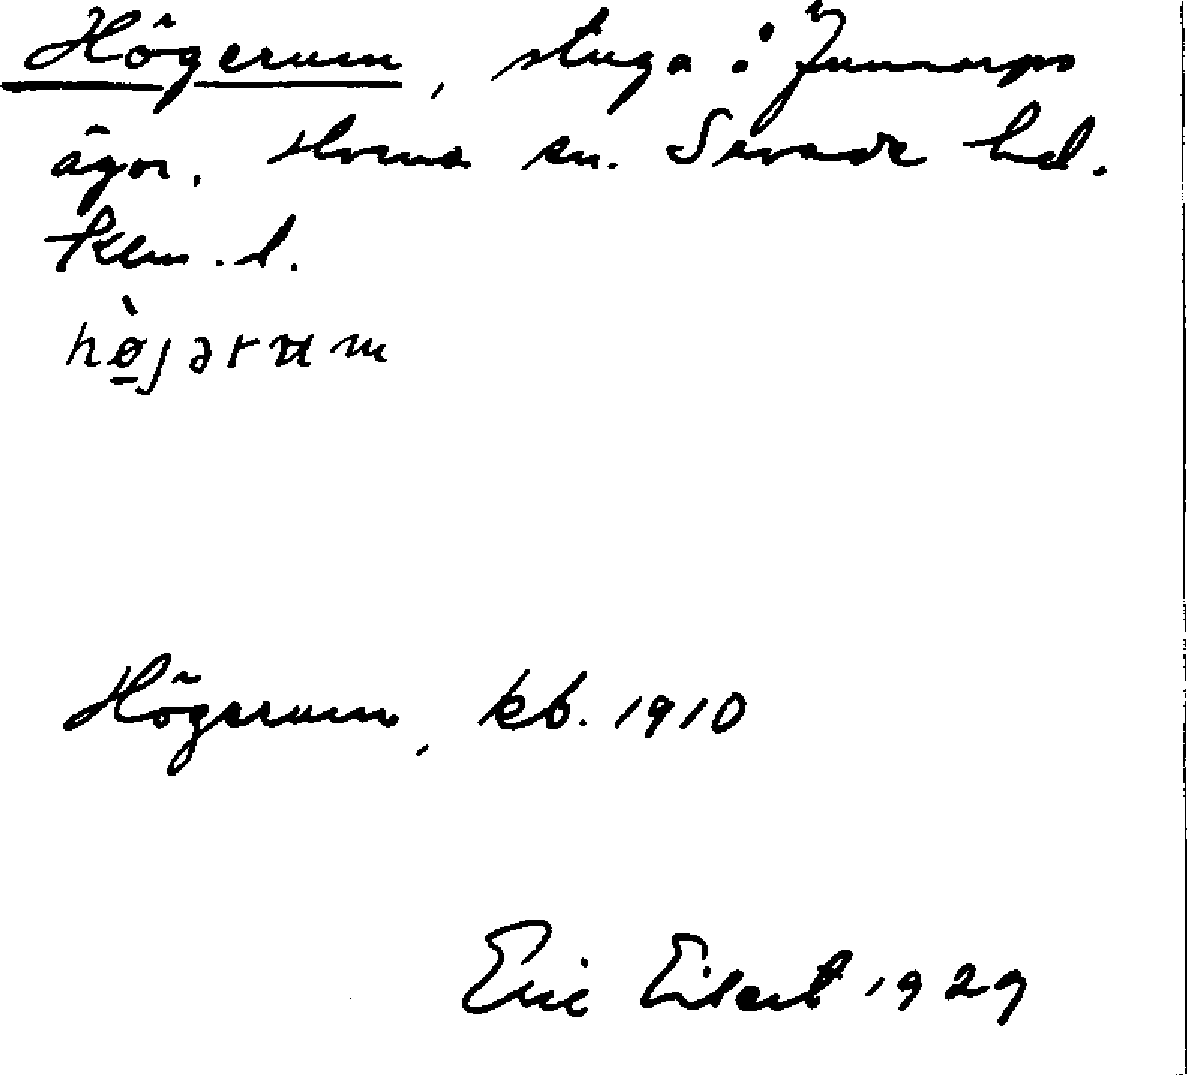 Högerum, stuga i Junnarps
ägor. Horns sn. Sevede hd.
Klm. l.
hø̀jərum
Högerum, kb. 1910
Eric Eilert 1929